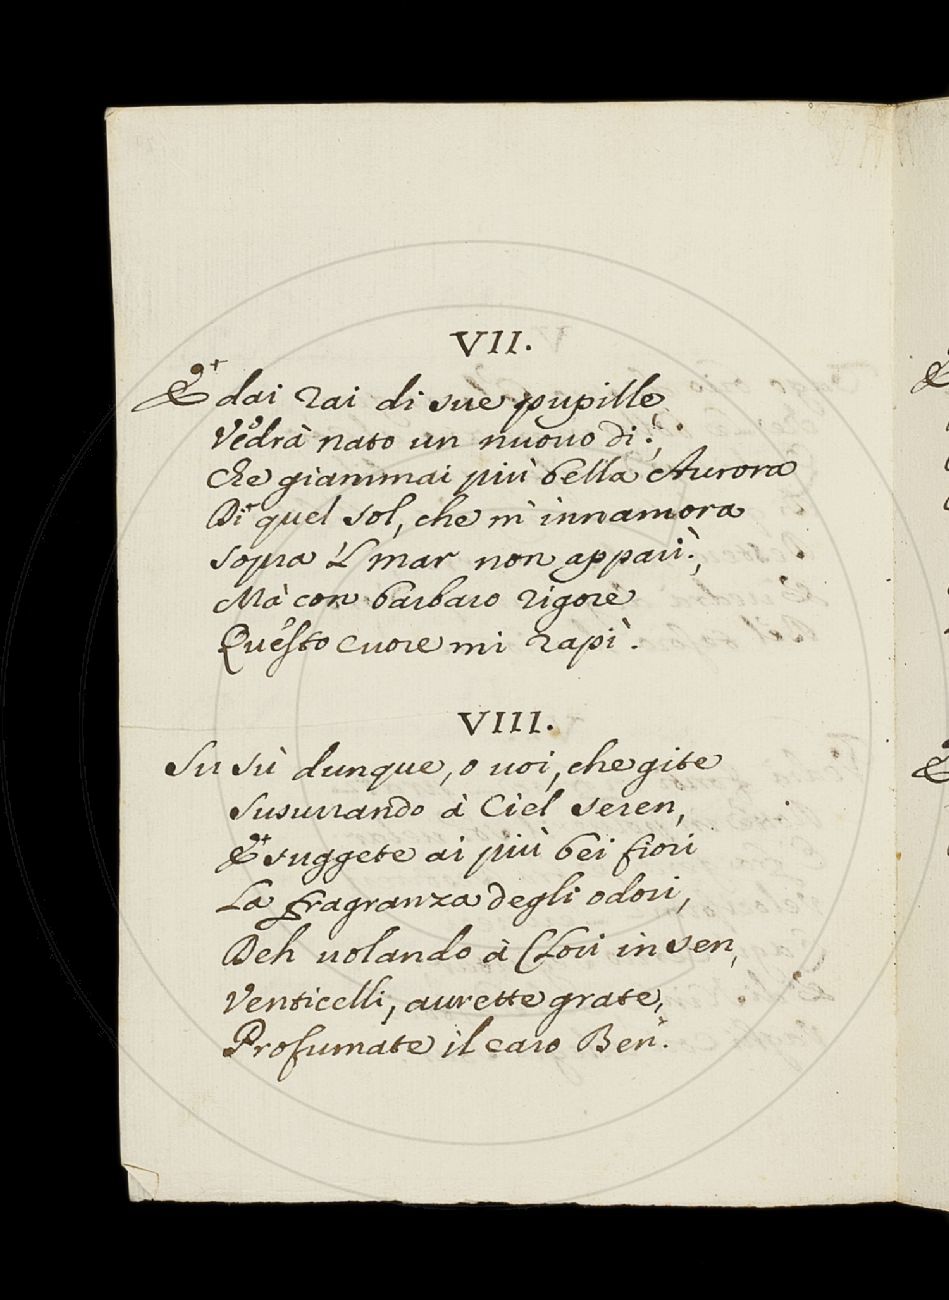 VII.
Et dai rai di sue pupille
Vedrà nato un nuouo dì;
Che giammai più bella Aurora
Di quel sol, che m'innamora
Sopra 'L mar non apparì;
Mà con barbaro rigore
Questo cuore mi rapì.
VIII.
Su sù dunque, o uoi, che gite
Susurrando à Ciel seren,
Et suggete ai più bei fiori
La fragranza degli odori,
Deh uolando à Clori in sen,
Venticelli, aurette grate,
Profumate il caro Ben.